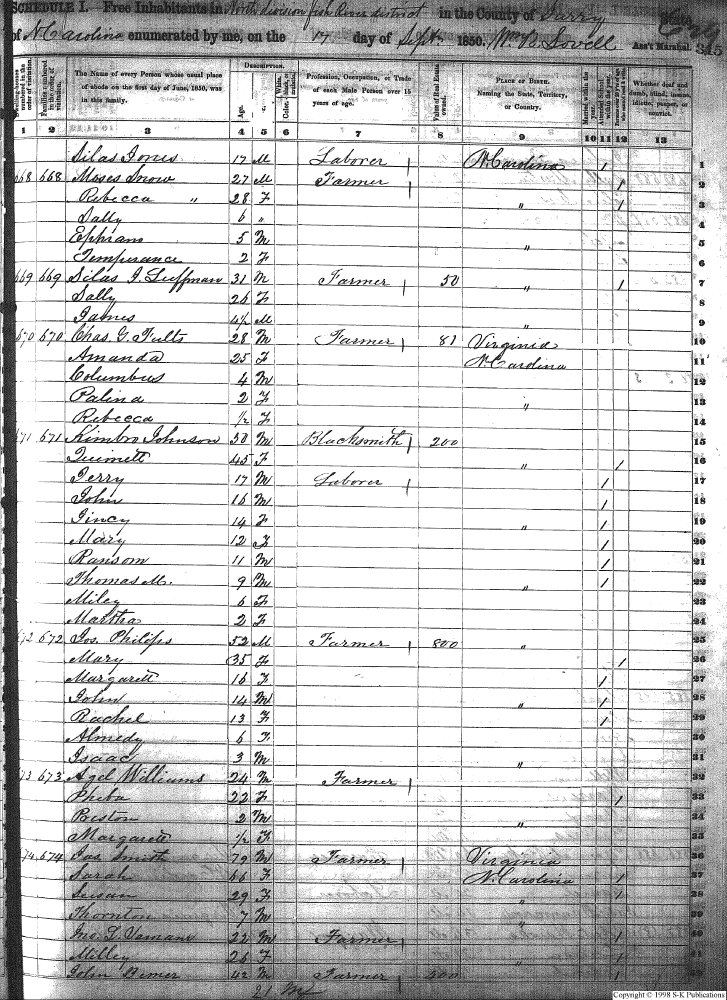 SCHEDULE I. Free Inhabitants in North division Fish River district in the County of Surry State
of N Carolina enumerated by me, on the 17 day of Sept. 1850. Wm B Lovell Ass't Marshal. 345
DESCRIPTION.
The Name of every Person whose usual place of abode on the first day of June, 1850, was in this family.
Age.
Profession, Occupation, or Trade of each Male Person over 15 years of age.
Value of Real Estate owned.
PLACE OF BIRTH. Naming the State, Territory, or Country.
Whether deaf and dumb, blind, insane, idiotic, pauper, or convict.
1 2 3 4 5 6 7 8 9 10 11 12 13
Silas Jones 17 M Laborer N. Carolina / 1
668 668 Moses Snow 27 M Farmer / 2
Rebecca " 28 F " / 3
Sally 6 " 4
Ephram 5 M " 5
Temperance 2 F 6
669 669 Silas J Luffman 31 M Farmer 50 " / 7
Sally 26 F 8
James 4/12 M " 9
670 670 Chas. G. Fults 28 M Farmer 81 Virginia 10
Amanda 25 F N. Carolina 11
Columbus 4 M 12
Palina 2 F " 13
Rebecca 1/2 F 14
671 671 Kimbro Johnson 50 M Blacksmith 200 15
45 F " / 16
Jerry 17 M Laborer / 17
John 16 M / 18
Jincy 14 F " / 19
Mary 12 F / 20
Ransom 11 M / 21
Thomas M. 9 M " / 22
Miley 6 F 23
Martha 2 F 24
672 672 Jos. Philips 52 M Farmer 800 " 25
Mary 35 F / 26
Margarett 16 F / 27
John 14 M " / 28
Rachel 13 F / 29
Almedy 6 F 30
Isaac 3 M " 31
673 673 Azel Williams 24 M Farmer 32
Pheba 22 F / 33
Preston 2 M " 34
Margarett 1/2 F 35
674 674 Jas Smith 79 M Farmer Virginia 36
Sarah 66 F N. Carolina / 37
Susan 29 F " / 38
Thornton 7 M 39
22 M Farmer / 40
Milley 26 F " /
John 42 M Farmer 500 /
21 M
Copyright © 1998 S-K Publications